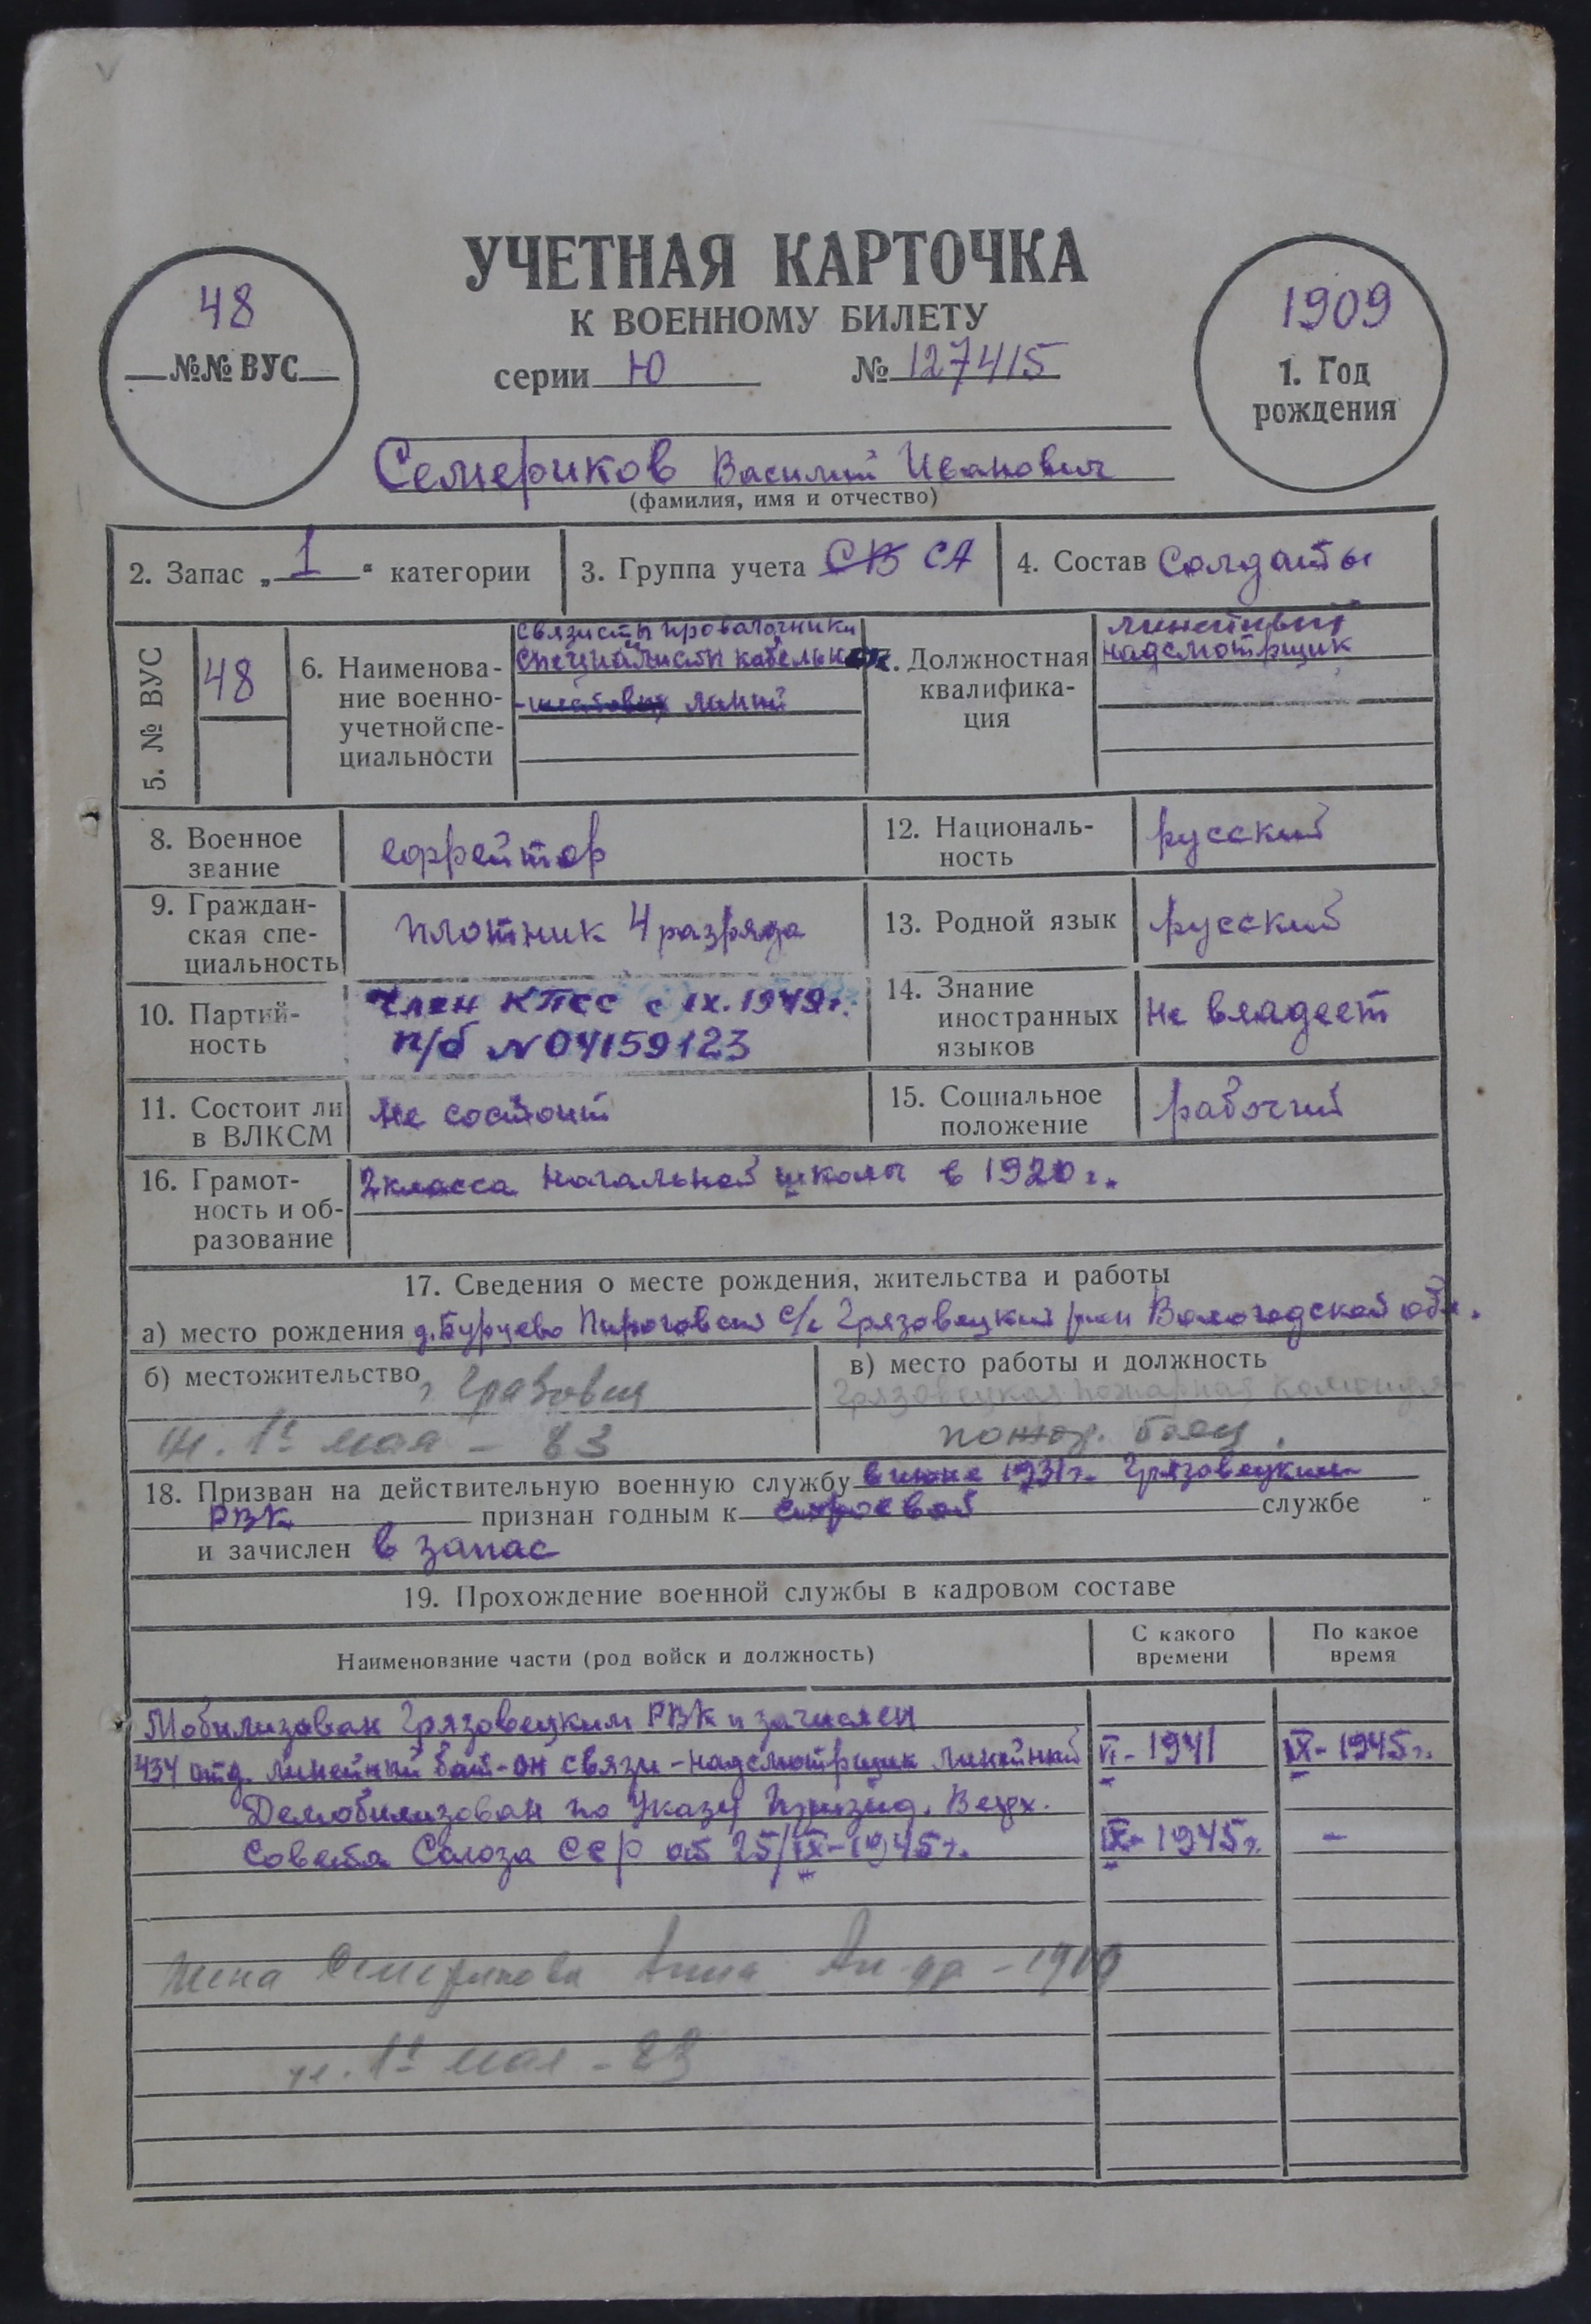 УЧЕТНАЯ КАРТОЧКА
К ВОЕННОМУ БИЛЕТУ
серии Ю № 127415
48
№№ ВУС
1909
1. Год
рождения
Семериков Василий Иванович
(фамилия, имя и отчество)
2. Запас „ 1 “ категории
3. Группа учета СВ СА
4. Состав Солдаты
5. № ВУС
48
6. Наименова-
ние военно-
учетной спе-
циальности
связисты проволочники
специалисты кабельн
линий
7. Должностная
квалифика-
ция
линейный
надсмотрщик
8. Военное
звание
ефрейтор
12. Националь-
ность
русский
9. Граждан-
ская спе-
циальность
плотник 4 разряда
13. Родной язык
русский
10. Партий-
ность
Член КПСС с IX.1949г.
п/б №04159123
14. Знание
иностранных
языков
не владеет
11. Состоит ли
в ВЛКСМ
не состоит
15. Социальное
положение
рабочий
16. Грамот-
ность и об-
разование
2 класса начальной школы в 1920 г.
17. Сведения о месте рождения, жительства и работы
а) место рождения д. Бурцево Пироговский с/с Грязовецкий р-он Вологодской обл.
б) местожительство г. Грязовец
ул. 1е мая - 83
в) место работы и должность
Грязовецкая пожарная команда
пожар. боец.
18. Призван на действительную военную службу в июне 1931г. Грязовецким
РВК признан годным к строевой службе
и зачислен в запас
19. Прохождение военной службы в кадровом составе
Наименование части (род войск и должность)
С какого
времени
По какое
время
Мобилизован Грязовецким РВК и зачислен
434 отд. линейный бат-он связи - надсмотрщик линейный VI - 1941 IX - 1945г.
Демобилизован по Указу Презид. Верх.
Совета Союза ССР от 25/IX-1945г. IX - 1945г. -
Жена Семерикова Анна - 1910
ул. 1е мая - 83